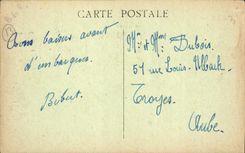 CARTE POSTALE
Bons baisers avant
d'embarquer.
Bebert.
Mr et Mme Dubois
51 rue Louis Ulbach
Troyes
Aube.